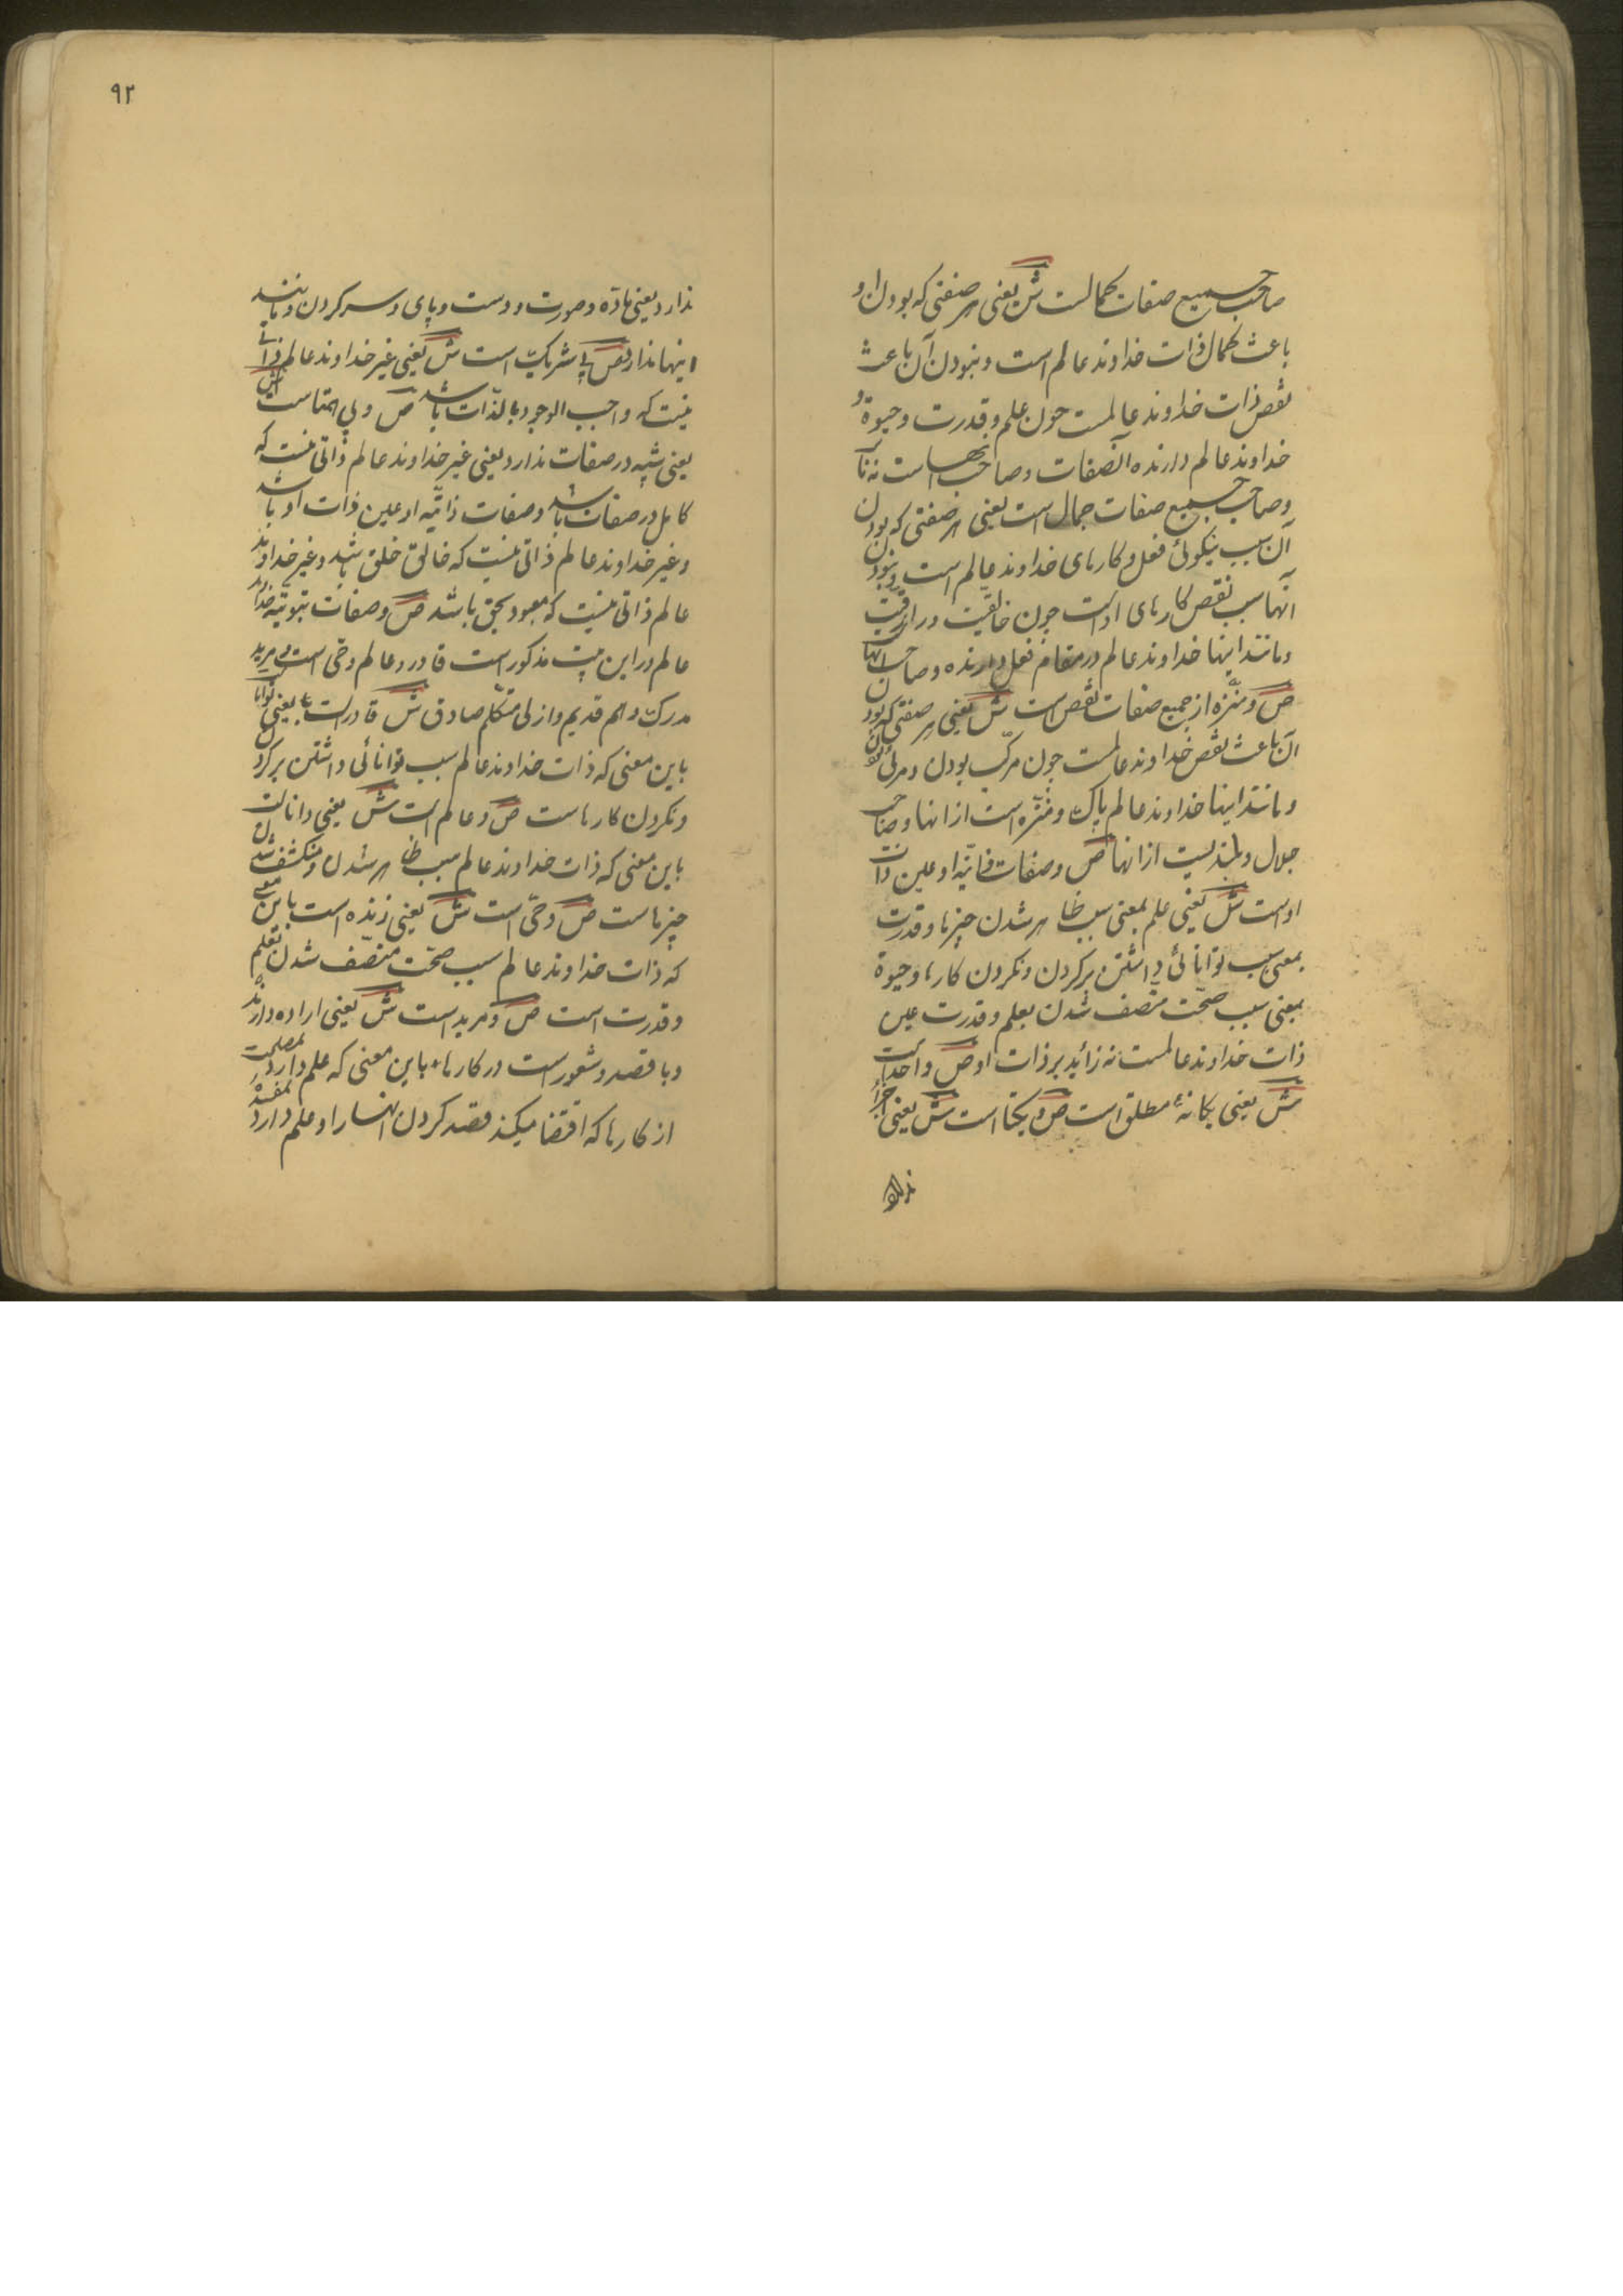 صاحب جمیع صفات کمالست ش یعنی هر صفتی که بودن او
باعث کمال ذات خداوند عالم است و نبودن آن باعث
نقص ذات خداوند عالمست چون علم و قدرت و حیوة و
خداوند عالم دارنده آنصفات و صاحب آنهاست
و صاحب جمیع صفات جمال است یعنی هر صفتی که بودن
آن سبب نیکوئی فعل و کارهای خداوند عالم است و نبودن
آنها سبب نقص کارهای اوست چون خالقیت و رازقیت
و مانند اینها خداوند عالم در مقام فعل دارنده و صاحب آنها
ص و منزّه از جمیع صفات نقص است ش یعنی هر صفتی که بودن
آن باعث نقص خداوند عالمست چون مرکّب بودن و مرئی بودن
و مانند اینها خداوند عالم پاک و منزّه است از انها و صاحب
جلال و بلندیست از انها ص و صفات ذاتیّه او عین ذات
اوست ش یعنی علم بمعنی سبب ظاهر شدن چیزها و قدرت
بمعنی سبب توانائی داشتن بر کردن و نکردن کارها و حیوة
بمعنی سبب صحّت متّصف شدن بعلم و قدرت عین
ذات خداوند عالمست نه زائد بر ذات او ص و احد است
ش یعنی یکانهٔ مطلق است ص و یکتا است ش یعنی اجزا
ندارد
۹۲
ندارد یعنی مادّه و صورت و دست و پای و سر کردن و مانند
اینها ندارد ص بی شریک است ش یعنی غیر خداوند عالم ذاتی
نیست که واجب الوجود بالذّات باشد ص و بی همتاست ش
یعنی شبیه در صفات ندارد یعنی غیر خداوند عالم ذاتی نیست که
کامل در صفات باشد و صفات ذاتیّه او عین ذات او باشد
و غیر خداوند عالم ذاتی نیست که خالق خلق باشد و غیر خداوند
عالم ذاتی نیست که معبود بحق باشد ص و صفات ثبوتیّه خداوند
عالم در این بیت مذکور است قادر و عالم و حیّ است مرید
مدرک و هم قدیم و ازلی متکلّم صادق ش قادر است یعنی توانا
باین معنی که ذات خداوند عالم سبب توانائی داشتن بر کردن
و نکردن کارهاست ص و عالم است ش یعنی داناست
باین معنی که ذات خداوند عالم سبب ظاهر شدن و منکشف شدن
چیزهاست ص و حیّ است ش یعنی زنده است باین معنی
که ذات خداوند عالم سبب صحّت متّصف شدن بعلم
و قدرت است ص و مرید است ش یعنی اراده دارنده
و با قصد و شعور است در کارها باین معنی که علم دارد بمصلحت
از کارها که اقتضا میکند قصد کردن انها را و علم دارد بمفسده